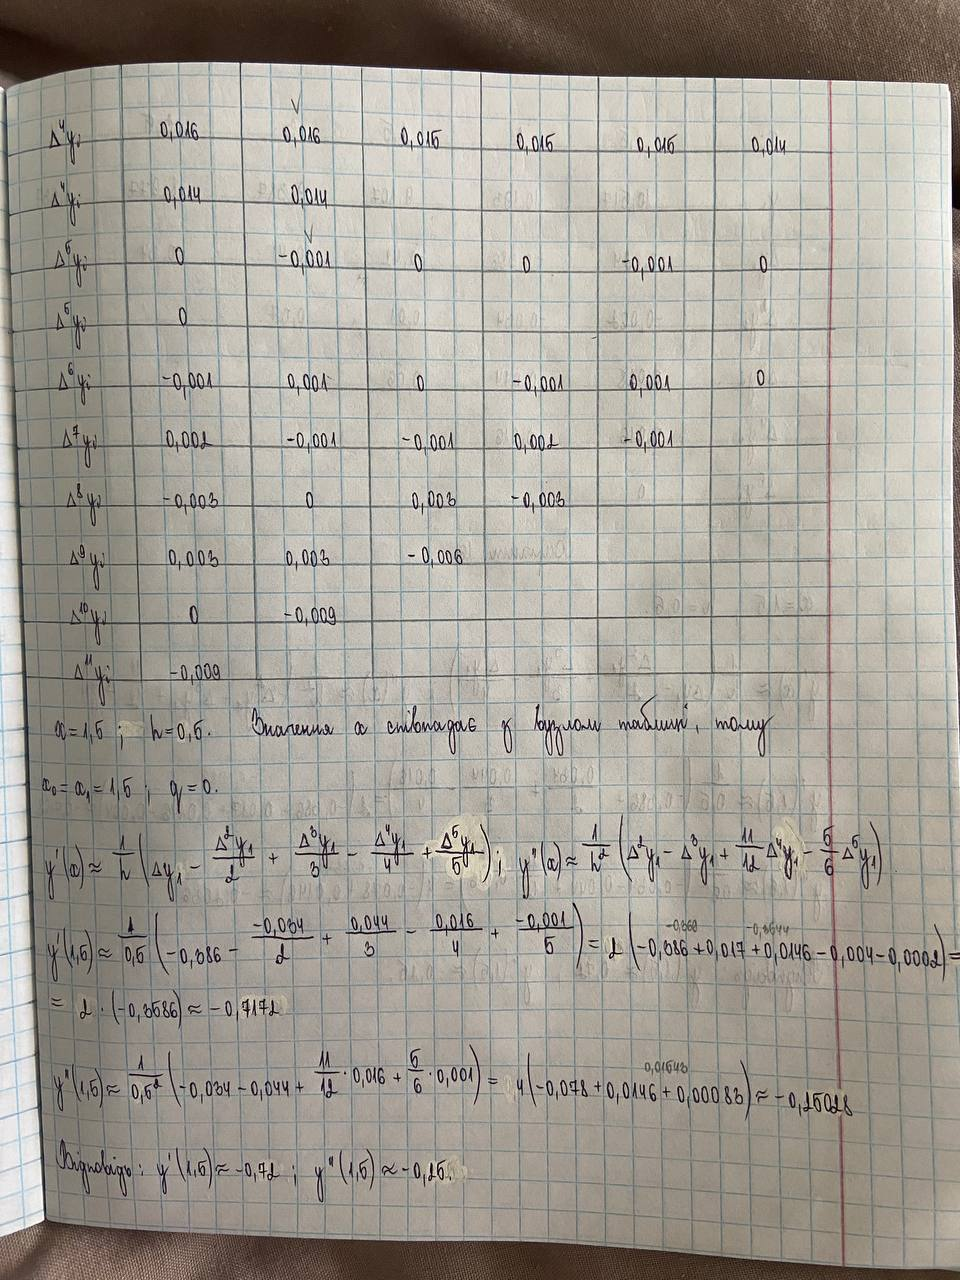 ∨
Δ⁴yᵢ 0,016 0,016 0,015 0,015 0,015 0,014
Δ⁴yᵢ 0,014 0,014
∨
Δ⁵yᵢ 0 -0,001 0 0 -0,001 0
Δ⁵yᵢ 0
Δ⁶yᵢ -0,001 0,001 0 -0,001 0,001 0
Δ⁷yᵢ 0,002 -0,001 -0,001 0,002 -0,001
Δ⁸yᵢ -0,003 0 0,003 -0,003
Δ⁹yᵢ 0,003 0,003 -0,006
Δ¹⁰yᵢ 0 -0,009
Δ¹¹yᵢ -0,009
x=1,5 ; h=0,5. Значення x співпадає з вузлом таблиці, тому
x₀=x₁=1,5 ; q=0.
y'(x) ≈ 1/h (Δy₁ - Δ²y₁/2 + Δ³y₁/3 - Δ⁴y₁/4 + Δ⁵y₁/5) ; y''(x) ≈ 1/h² (Δ²y₁ - Δ³y₁ + 11/12 Δ⁴y₁ - 5/6 Δ⁵y₁)
y'(1,5) ≈ 1/0,5 (-0,386 - -0,034/2 + 0,044/3 - 0,016/4 + -0,001/5) = 2 (-0,386 + 0,017 + 0,0146 - 0,004 - 0,0002) =
= 2 · (-0,3586) ≈ -0,7172
0,01543
y''(1,5) ≈ 1/0,5² (-0,034 - 0,044 + 11/12 · 0,016 + 5/6 · 0,001) = 4(-0,078 + 0,0146 + 0,00083) ≈ -0,25028
Відповідь: y'(1,5) ≈ -0,72 ; y''(1,5) ≈ -0,25.